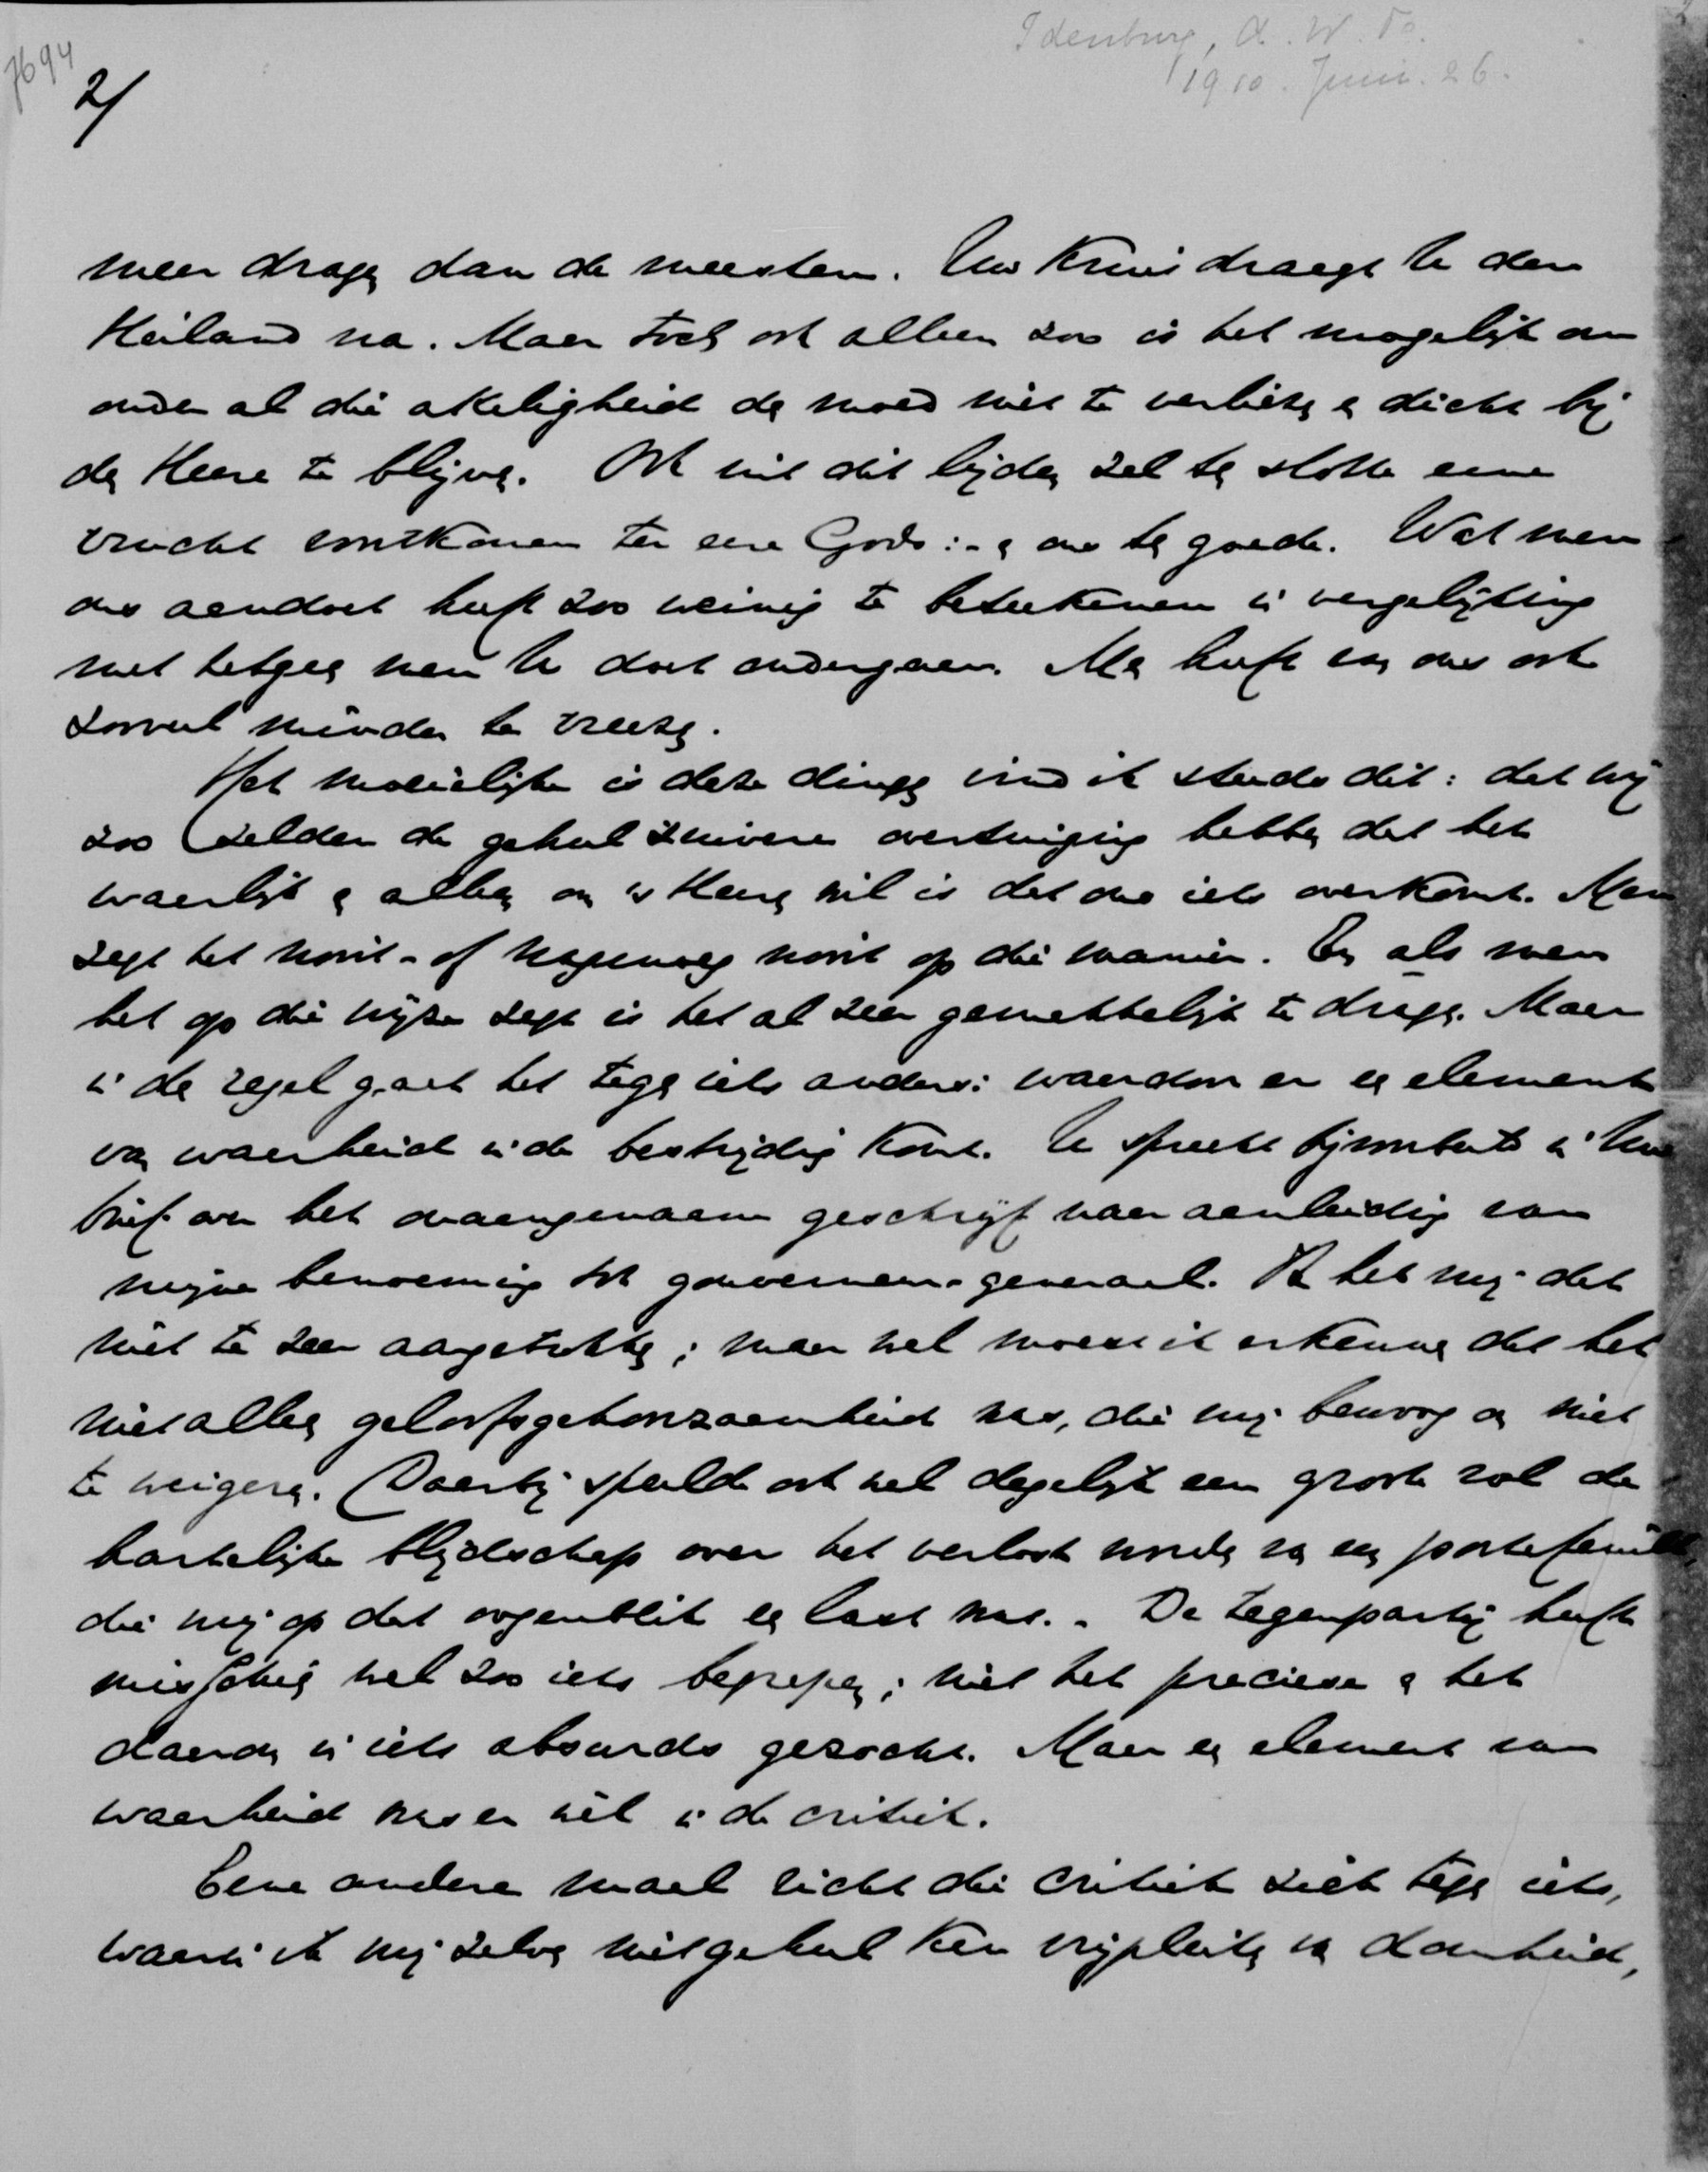 7694
Idenburg, A. W. F.
1910. Juni. 26.
2/
meer dragen dan de meesten. Uw kruis draagt U den
Heiland na. Maar toch ook alleen zoo is het mogelijk om
onder al die akeligheid den moed niet te verliezen en dicht bij
den Heere te blijven. Ook uit dit lijden zal ten slotte eene
vrucht komen ter eere Gods :- en ons ten goede. Wat men
ons aandoet heeft zoo weinig te beteekenen in vergelijking
met hetgeen men U doet ondergaan. Men heeft van ons ook
zooveel minder te vreezen.
Het moeielijke in deze dingen vind ik steeds dit: dat wij
zoo zelden de geheel zuivere overtuiging hebben dat het
waarlijk en alleen om 's Heeren wil is dat ons iets overkomt. Men
zegt het nooit - of nagenoeg nooit op die manier. En als men
het op die wijze zegt is het al zeer gemakkelijk te dragen. Maar
in den regel gaat het tegen iets anders: waardoor er een element
van waarheid in de bestrijding komt. U spreekt bijvoorbeeld in Uw
brief over het onaangenaam geschrijf naar aanleiding van
mijne benoeming tot gouverneur-generaal. Ik heb mij dat
niet te zeer aangetrokken; maar wel moest ik erkennen dat het
niet alleen geloofsgehoorzaamheid was, die mij bewoog om niet
te weigeren. Daarbij speelde ook wel degelijk een groote rol de
hartelijke blijdschap over het verlost worden van een portefeuille,
die mij op dat oogenblik een last was. - De tegenpartij heeft
misschien wel zoo iets begrepen; niet het precieze en het
daarom in iets absurds gezocht. Maar een element van
waarheid was er wèl in de critiek.
Eene andere maal richt die critiek zich tegen iets,
waarin ik mij zelven niet geheel kan vrijpleiten van domheid,